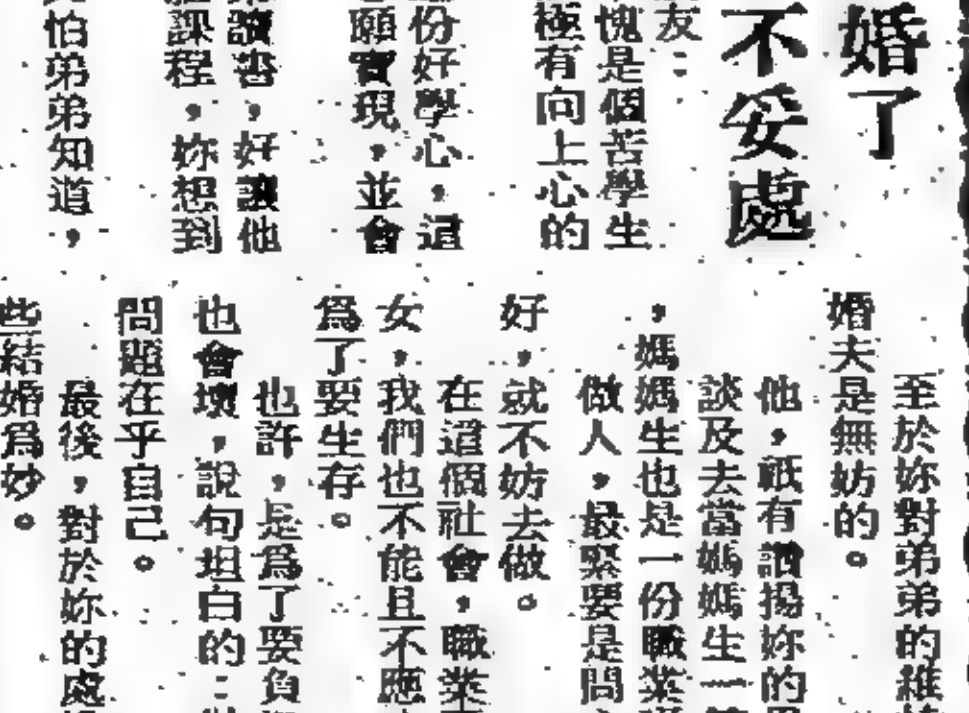 婚了
不妥處
友：
愧是個苦學生
極有向上心的
份好學心，這
願實現，並會
讀書，好讓他
課程，妳想到
怕弟弟知道，
至於妳對弟弟的
婚夫是無妨的。
他，祇有讚揚妳的
談及去當媽媽生一
，媽媽生也是一份職業
做人，最緊要是問
好，就不妨去做。
在這個社會，職業
女，我們也不能且不應
為了要生存。
也許，是為了要負
也會壞，說句坦白的：
問題在乎自己。
最後，對於妳的處
些結婚為妙。